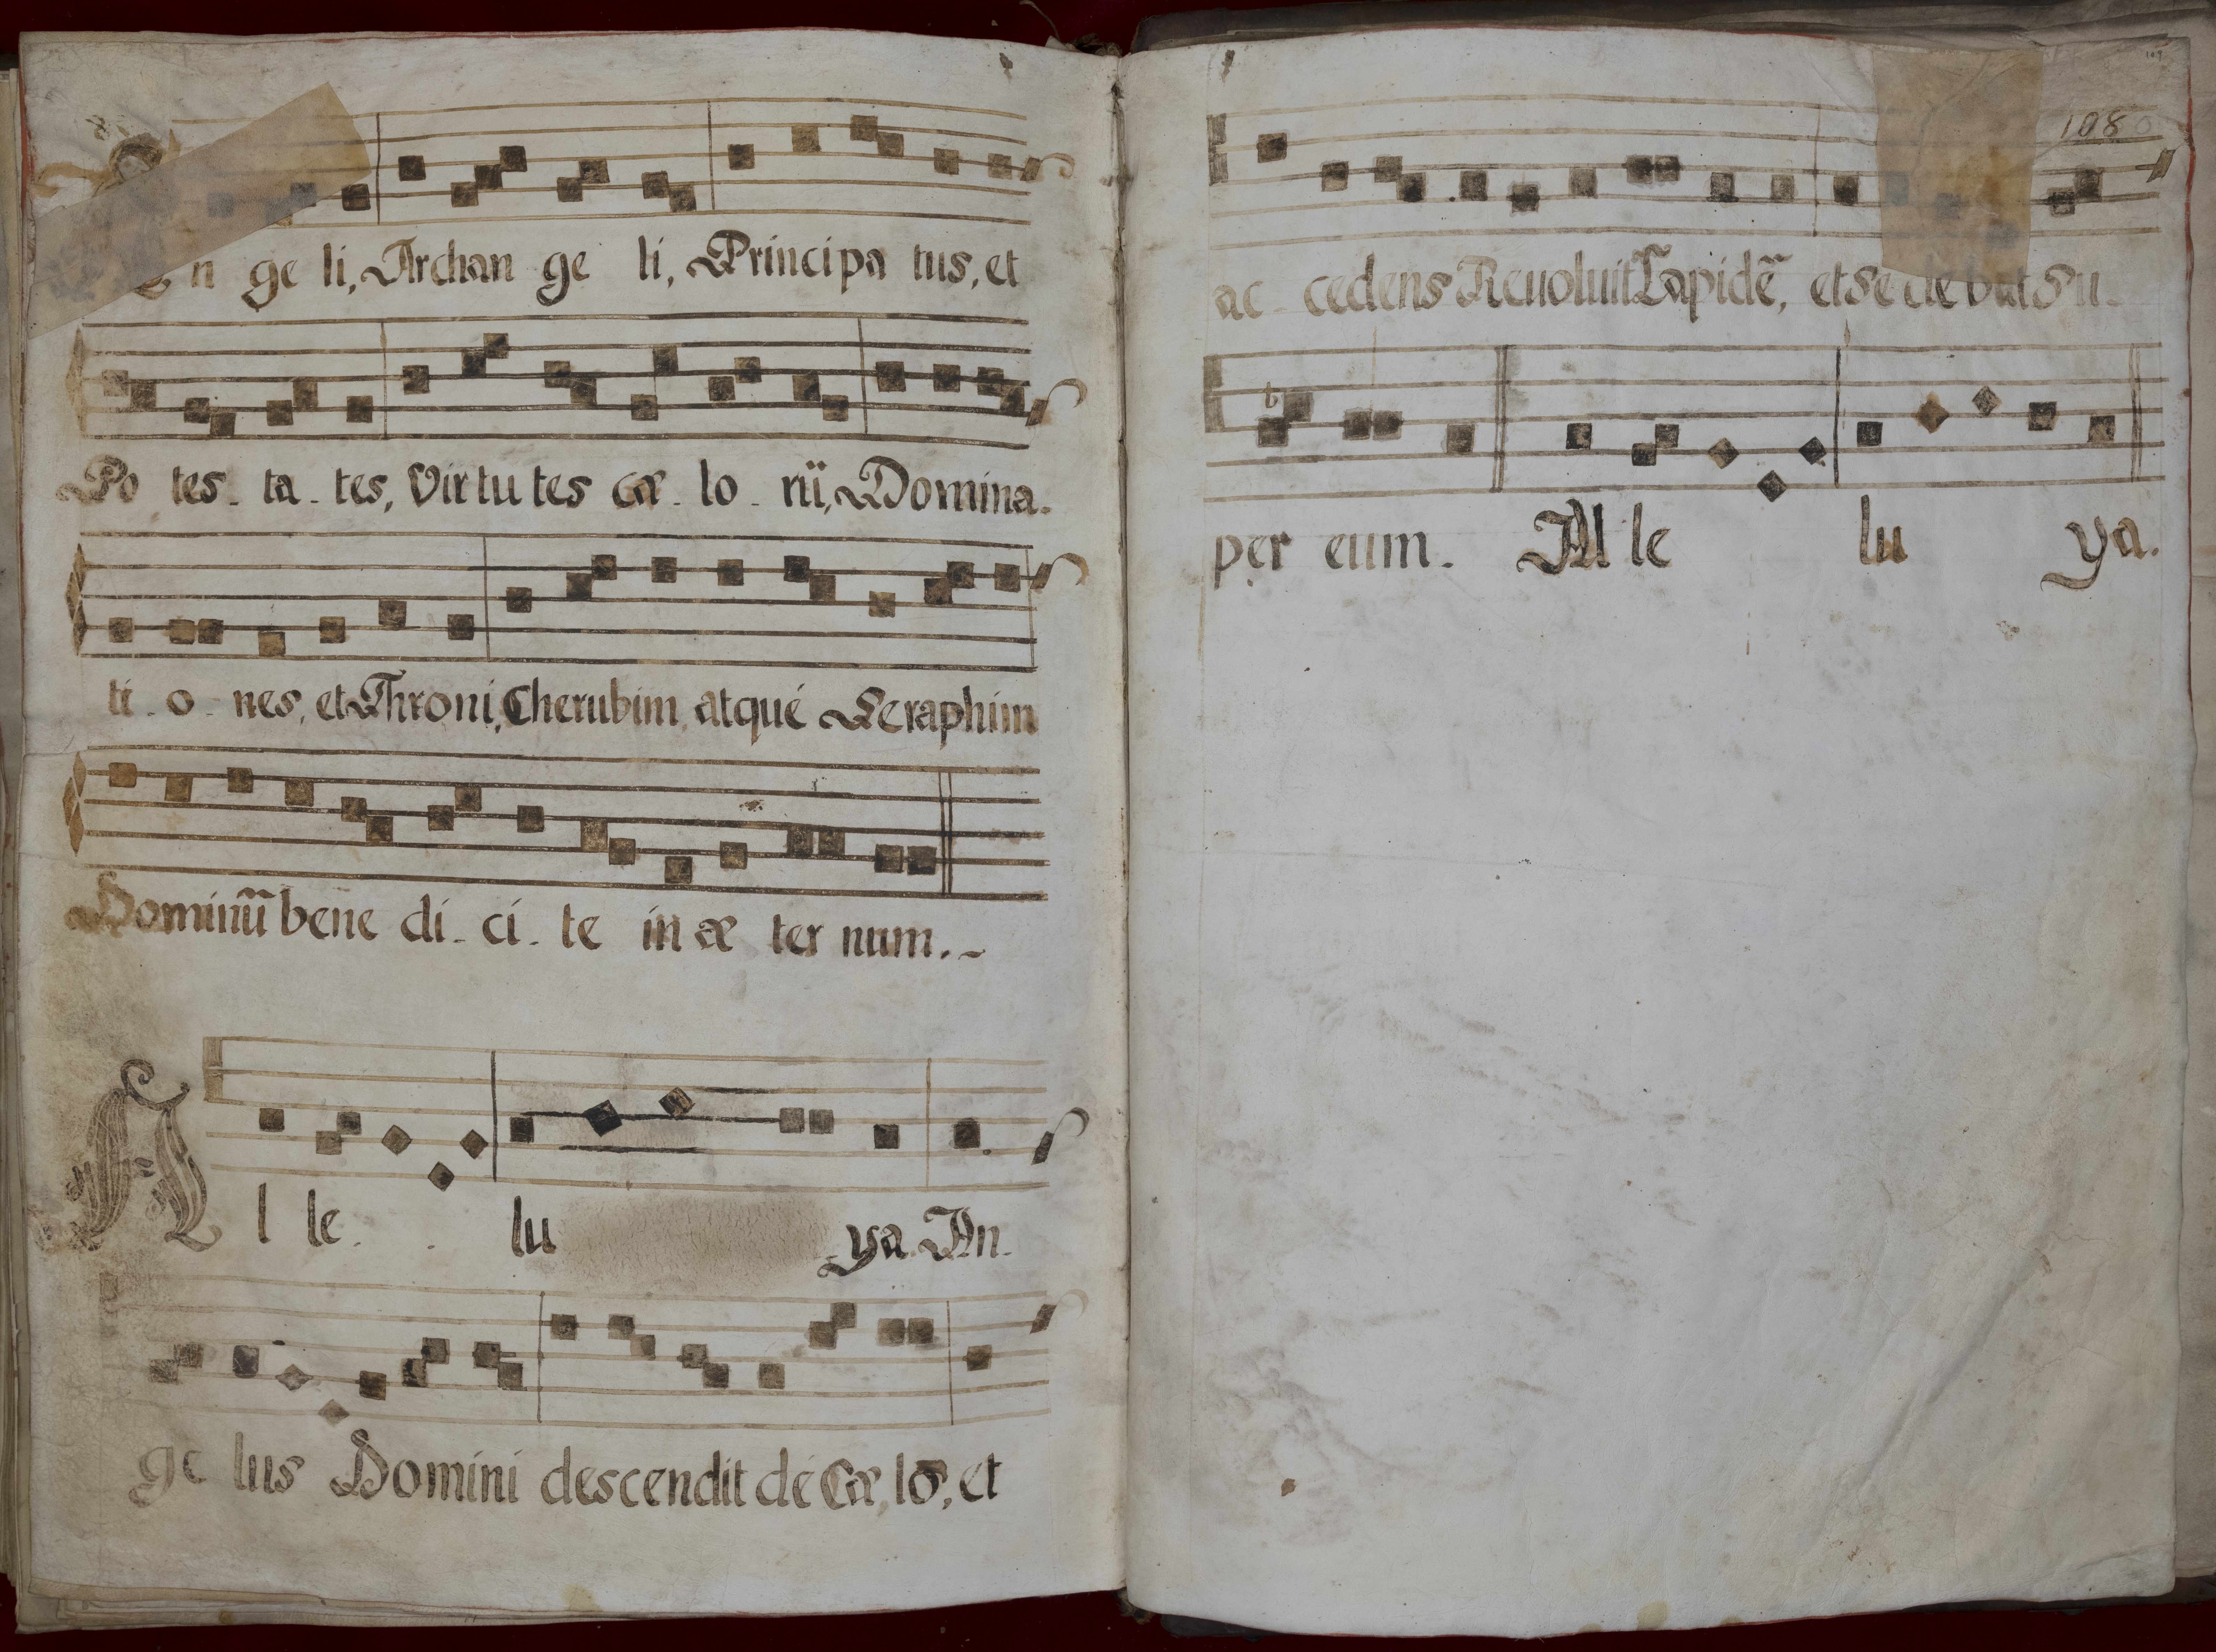 An ge li, Archan ge li, Principa tus, et
Po tes - ta - tes, Virtu tes cæ - lo - rũ, Domina -
ti - o - nes, et Throni, Cherubim, atque Seraphim
Dominũ bene di - ci - te in æ ter num.
Al le lu ya. An -
ge lus Domini descendit de Cæ, lo, et
108
ac - cedens Reuoluit Lapidẽ, et Se de bat Su -
per eum. Al le lu ya.